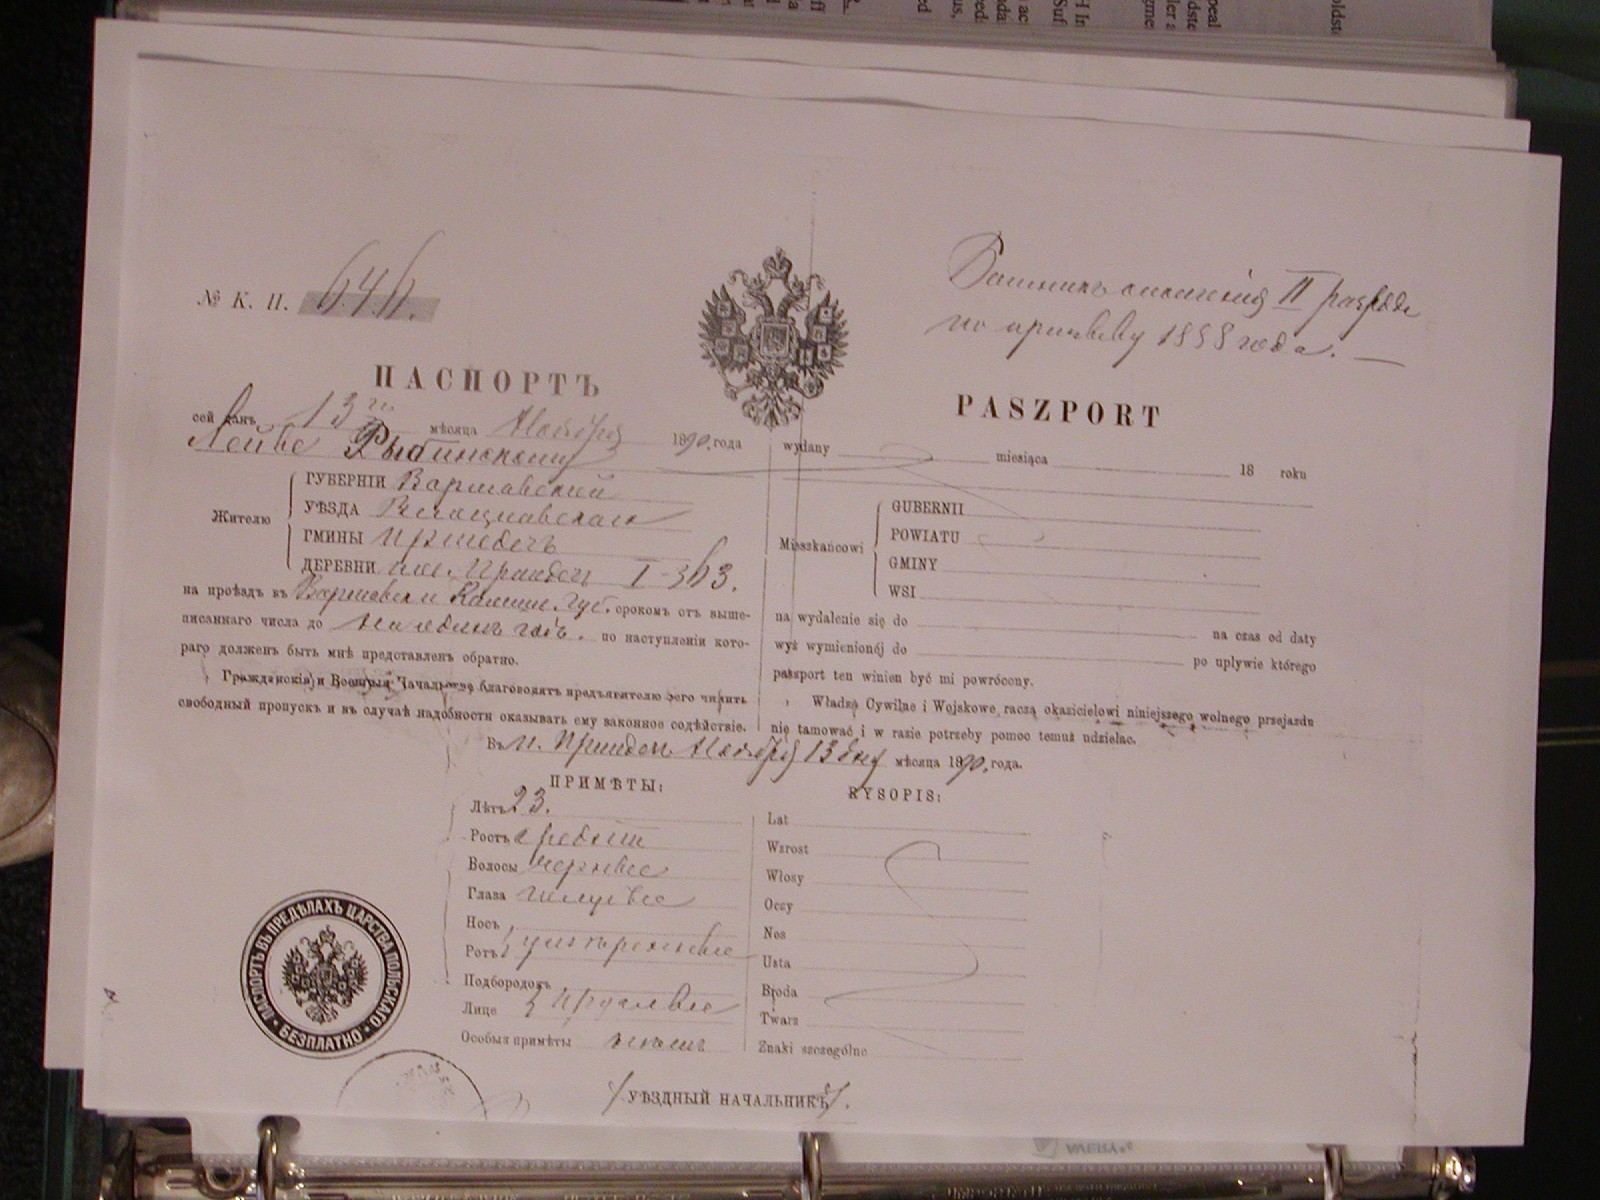 № К. П. 646.
II
1888 года.
ПАСПОРТЪ
PASZPORT
сей данъ 13го мѣсяца Ноября 1890. года
wydany miesiąca 18 roku
Лейбѣ Рыбинскому
Жителю
ГУБЕРНІИ Варшавской
УѢЗДА Влоцлавскаго
ГМИНЫ Пршедечъ
ДЕРЕВНИ пос. Пршедеч I-363.
Mieszkańcowi
GUBERNII
POWIATU
GMINY
WSI
на проѣздъ въ Варшавск и Калиш. Губ. срокомъ отъ выше-
писаннаго числа до на одинъ годъ. по наступленіи кото-
раго долженъ быть мнѣ представленъ обратно.
Гражданскія и Военныя Начальства благоволятъ предъявителю сего чинить
свободный пропускъ и въ случаѣ надобности оказывать ему законное содѣйствіе.
na wydalenie się do na czas od daty
wyż wymienionéj do po upływie którego
paszport ten winien być mi powrócony.
Władze Cywilne i Wojskowe raczą okazicielowi niniejszego wolnego przejazdu
nie tamować i w razie potrzeby pomoc temuż udzielać.
Въ п. Пршедеч Ноября 13 дня мѣсяца 1890. года.
ПРИМѢТЫ:
Лѣтъ 23.
Ростъ средній
Волосы черные
Глаза голубые
Носъ
Ротъ умѣренные
Подбородокъ
Лице
Особыя примѣты
RYSOPIS:
Lat
Wzrost
Włosy
Oczy
Nos
Usta
Broda
Twarz
Znaki szczególne
ПАСПОРТЪ ВЪ ПРЕДѢЛАХЪ ЦАРСТВА ПОЛЬСКАГО
БЕЗПЛАТНО
УѢЗДНЫЙ НАЧАЛЬНИКЪ
AVERY